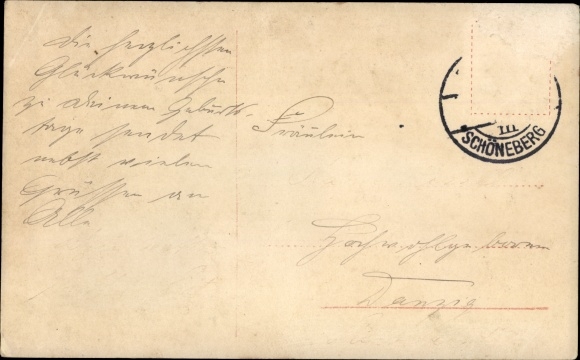 die herzlichsten
Glückwünsche
zu deinem Geburts-
tage sendet
nebst vielen
Grüssen an
Alle
Fräulein
Hochwohlgeboren
Danzig
III
SCHÖNEBERG